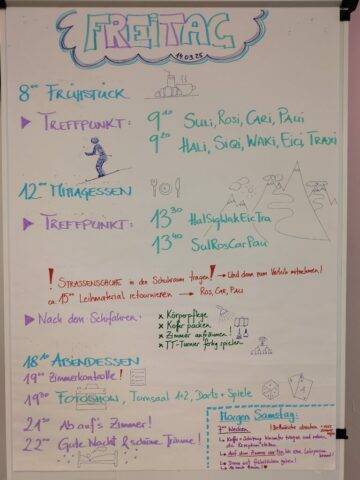 FREITAG
14.03.25
8⁰⁰ FRÜHSTÜCK
TREFFPUNKT: 9¹⁰ SULI, ROSI, CARI, PAUI
9²⁰ HALI, SIGI, WAKI, EICI, TRAXI
12⁰⁰ MITTAGESSEN
TREFFPUNKT: 13³⁰ HalSigWakEicTra
13⁴⁰ SulRosCarPau
! STRASSENSCHUHE in den Schuhraum tragen! → Und dann zum Verleih mitnehmen!
ca. 15⁰⁰ Leihmaterial retournieren → Ros, Car, Pau
Nach dem Skifahren: × Körperpflege
× Koffer packen
× Zimmer aufräumen
× TT-Turnier fertig spielen
18¹⁰ ABENDESSEN
19⁰⁰ Zimmerkontrolle!
19³⁰ FOTOSHOW, Turnsaal 1+2, Darts + Spiele
21³⁰ Ab auf's Zimmer!
22⁰⁰ Gute Nacht & schöne Träume!
Morgen Samstag:
7⁰⁰ Wecken